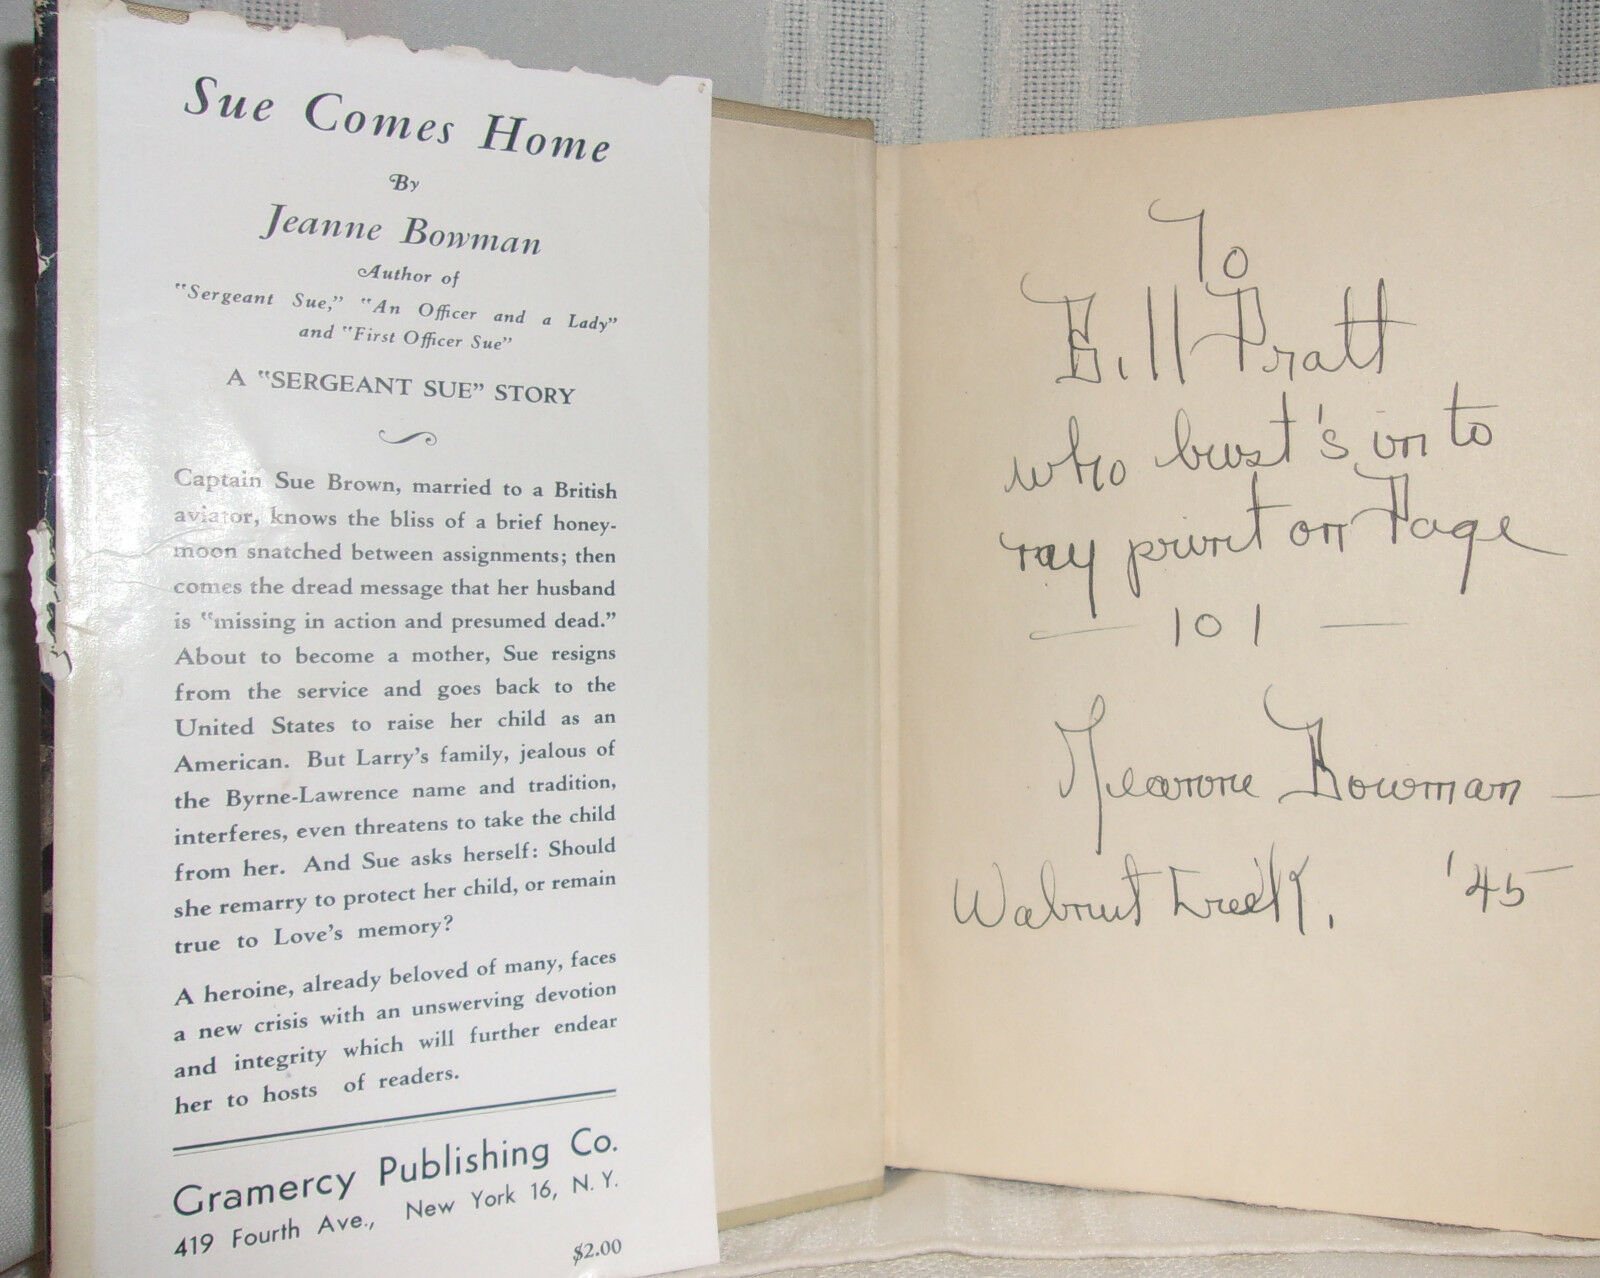 Sue Comes Home
By
Jeanne Bowman
Author of
"Sergeant Sue," "An Officer and a Lady"
and "First Officer Sue"
A "SERGEANT SUE" STORY
Captain Sue Brown, married to a British
aviator, knows the bliss of a brief honey-
moon snatched between assignments; then
comes the dread message that her husband
is "missing in action and presumed dead."
About to become a mother, Sue resigns
from the service and goes back to the
United States to raise her child as an
American. But Larry's family, jealous of
the Byrne-Lawrence name and tradition,
interferes, even threatens to take the child
from her. And Sue asks herself: Should
she remarry to protect her child, or remain
true to Love's memory?
A heroine, already beloved of many, faces
a new crisis with an unswerving devotion
and integrity which will further endear
her to hosts of readers.
Gramercy Publishing Co.
419 Fourth Ave., New York 16, N. Y.
$2.00
To
Bill Pratt
who bust's in to
my print on Page
— 101 —
Jeanne Bowman —
Walnut Creek, '45